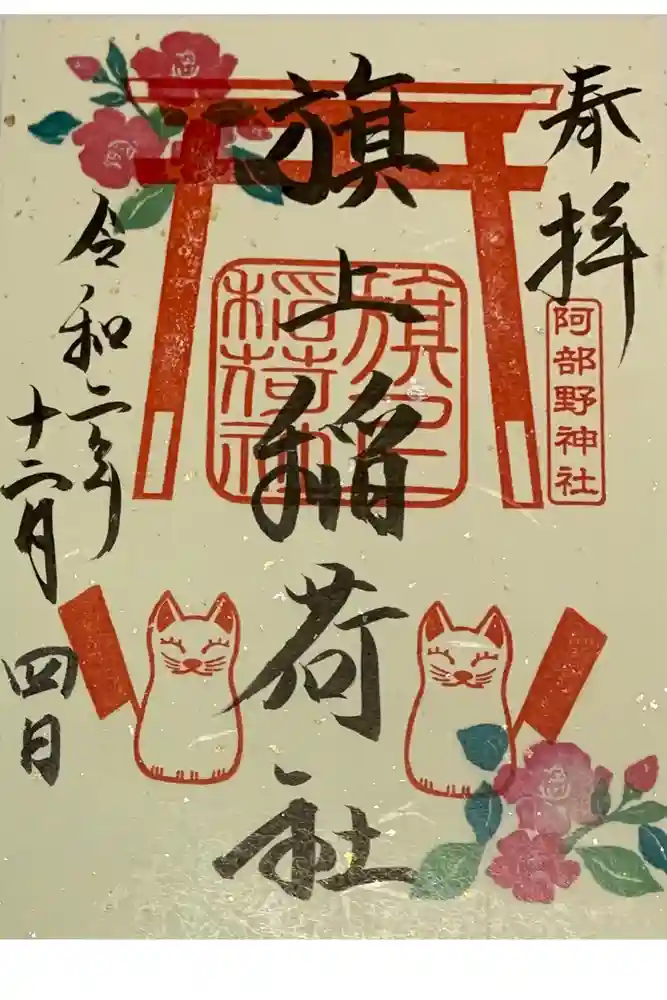 奉拝
阿部野神社
旗上稲荷社
旗上
稲荷神
令和二年
十二月
四日